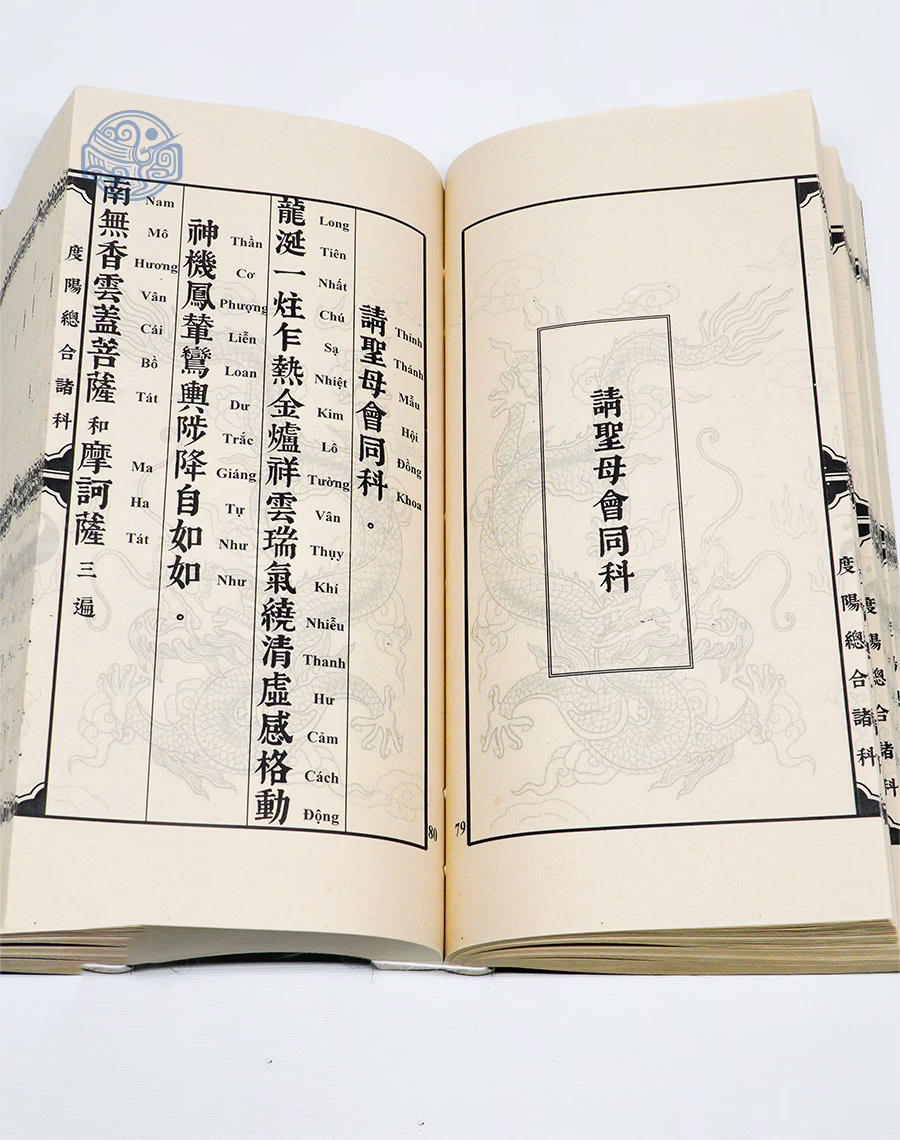 度陽總合諸科
請聖母會同科
79
Thỉnh Thánh Mẫu Hội Đồng Khoa
請聖母會同科。
Long Tiên Nhất Chú Sạ Nhiệt Kim Lô Tường Vân Thụy Khí Nhiễu Thanh Hư Cảm Cách Động
龍涎一炷乍熱金爐祥雲瑞氣繞清虛感格動
Thần Cơ Phượng Liễn Loan Dư Trắc Giáng Tự Như Như
神機鳳輦鸞輿陟降自如如。
Nam Mô Hương Vân Cái Bồ Tát Ma Ha Tát
南無香雲蓋菩薩和摩訶薩三遍
度陽總合諸科
80